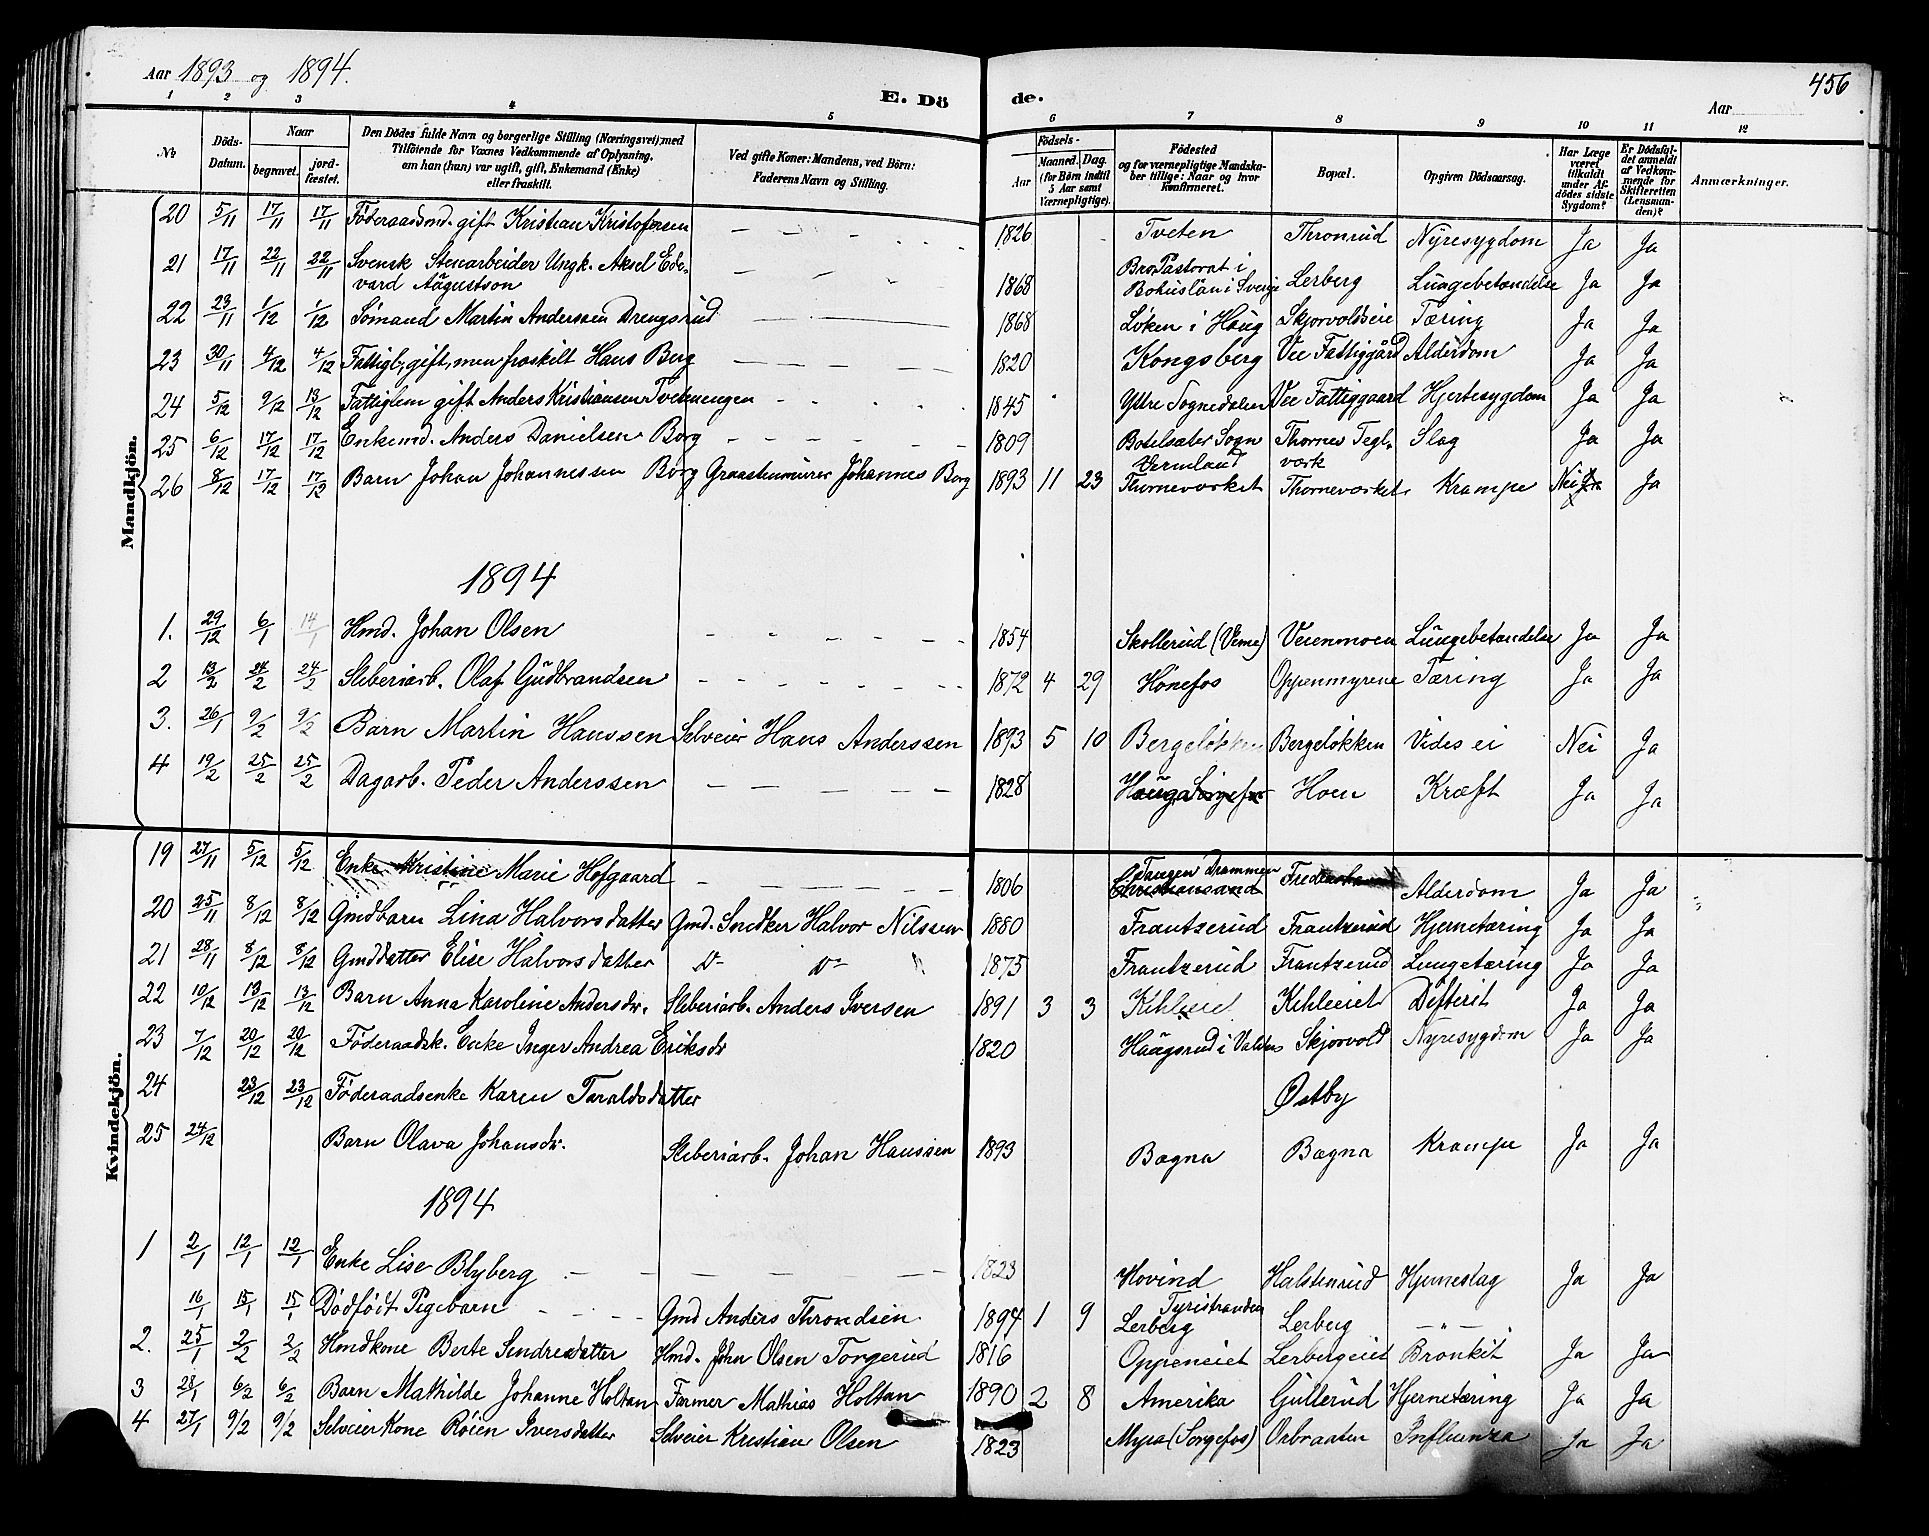 Aar 1893 og 1894.
E. Dö de.
Aar
456
1 2 3 4 5 6 7 8 9 10 11 12
No
Döds-Datum.
Naar
begravet.
jord-fæstet.
Den Dödes fulde Navn og borgerlige Stilling (Næringsvei), med
Tilföiende for Voxnes Vedkommende af Oplysning,
om han (hun) var ugift, gift, Enkemand (Enke)
eller fraskilt.
Ved gifte Koner: Mandens, ved Börn:
Faderens Navn og Stilling.
Födsels-
Aar
Maaned. Dag.
(for Börn indtil
5 Aar samt
Værnepligtige).
Födested
og for værnepligtige Mandska-
ber tillige: Naar og hvor
konfirmeret.
Bopæl.
Opgiven Dödsaarsag.
Har Læge
været
tilkaldt
under Af-
dödes sidste
Sygdom?
Er Dödsfal-
det anmeldt
af Vedkom-
mende for
Skifteretten
(Lensman-
den)?
Anmærkninger.
Mandkjön.
20 5/11 17/11 17/11 Föderaadsmd. gift Kristian Kristofersen — — — — 1826 Tveten Thronrud Nyresygdom Ja Ja
21 17/11 22/11 22/11 Svensk Stenarbeider Ungk. Aksel Ed-
vard Augustson — — — 1868 Bro Pastorat i
Bohuslän i Sverige Lerberg Lungebetændelse Ja Ja
22 23/11 1/12 1/12 Sømand Martin Anderssen Drengsrud — — — 1868 Løken i Haug Skjorvoldseie Tæring Ja Ja
23 30/11 4/12 4/12 Fattigl., gift, men fraskilt Hans Berg — — — 1820 Kongsberg Vee Fattiggård Alderdom Ja Ja
24 5/12 9/12 13/12 Fattiglem gift Anders Kristiansen Tvetenengen - - - - 1845 Yttre Sognedalen Vee Fattiggaard Hjertesygdom Ja Ja
25 6/12 17/12 17/12 Enkemd. Anders Danielsen Borg — — — — 1809 Botelsæter Sogn
Vermland Thornes Tegl-
værk Slag Ja Ja
26 8/12 17/12 17/12 Barn Johan Johannessen Borg Graastenmurer Johannes Borg 1893 11 23 Thorneværket Thorneværket Krampe Nei Ja
1894
1. 29/12 6/1 14/1 Hmd. Johan Olsen - - - - - 1854 Skollerud (Veme) Veienmoen Lungebetændelse Ja Ja
2 13/2 24/2 24/2 Sliberiarb. Olaf Gudbrandsen - - - - - 1872 4 29 Hønefos Oppenmyrene Tæring Ja Ja
3. 26/1 9/2 9/2 Barn Martin Hanssen Selveier Hans Anderssen 1893 5 10 Bergeløkken Bergeløkken Vides ei Nei Ja
4 19/2 25/2 25/2 Dagarb. Peder Anderssen — — — — — 1828 Haug Hoen Kræft Ja Ja
Kvindekjön.
19 27/11 5/12 5/12 Enke Kristine Marie Hofgaard - — — — — 1806 Tangen Drammen
Christiansand Alderdom Ja Ja
20 25/11 8/12 8/12 Gmdbarn Lina Halvorsdatter Gmd. Snedker Halvor Nilssen 1880 Frantzerud Frantzerud Hjernetæring Ja Ja
21 28/11 8/12 8/12 Gmddatter Elise Halvorsdatter do do 1875 Frantzerud Frantzerud Lungetæring Ja Ja
22 10/12 13/12 13/12 Barn Anna Karoline Andersdr. Sliberiarb. Anders Iversen 1891 3 3 Kihleeie Kihleeiet Difterit Ja Ja
23 7/12 20/12 20/12 Föderaadsk. Enke Inger Andrea Eriksdr 1820 Haugsrud i Valders Skjorvold Nyresygdom Ja Ja
24 23/12 23/12 Föderaadsenke Karen Taraldsdatter Østby
25 24/12 Barn Olava Johansdr. Sliberiarb. Johan Hanssen 1893 Bægna Bægna Krampe Ja Ja
1894
1 2/1 12/1 12/1 Enke Lise Blyberg — — — — — — 1823 Hovind Halstenrud Hjerneslag Ja Ja
16/1 15/1 15/1 Dødfødt Pigebarn - - - Gmd Anders Throndsen 1894 1 9 Tyristranden
Lerberg Lerberg — " —
2. 25/1 2/2 2/2 Hmdkone Berte Sendresdatter Hmd. John Olsen Torgerud 1816 Oppeneiet Lerbergeiet Bronkit Ja Ja
3 28/1 6/2 6/2 Barn Mathilde Johanne Holtan Farmer Mathias Holtan 1890 2 8 Amerika Gullerud Hjernetæring Ja Ja
4 27/1 9/2 9/2 Selveier Kone Røien Iversdatter Selveier Kristian Olsen 1823 Myra (Sorgefos) Osbraaten Influenza Ja Ja